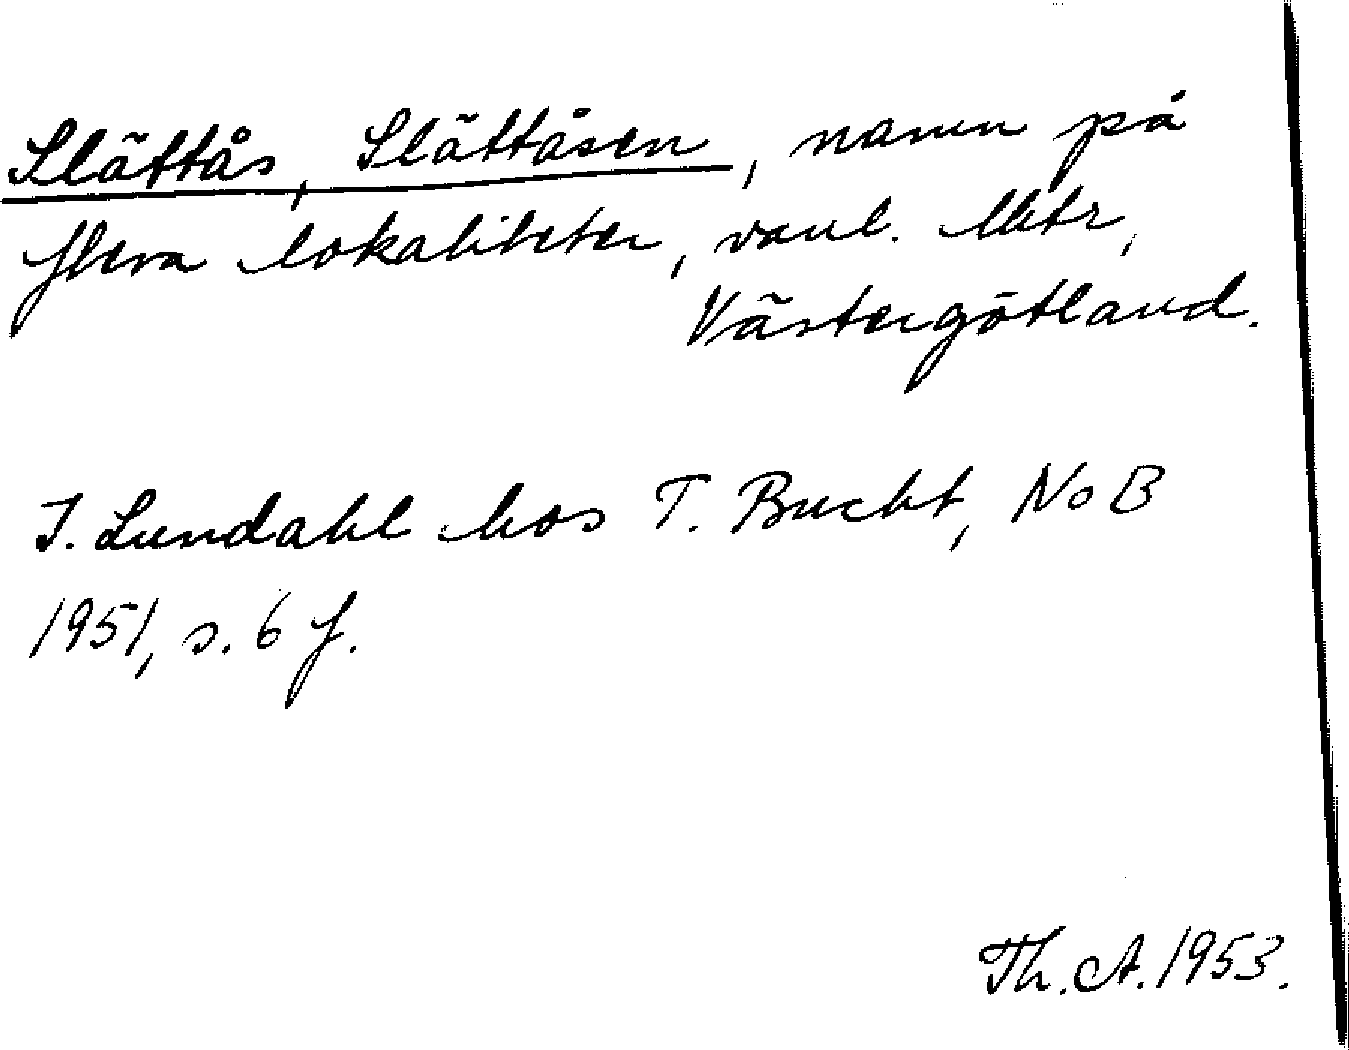 Slättås, Slättåsen, namn på
flera lokaliteter, vanl. lbitr,
Västergötland.
I. Lundahl hos T. Bucht, NoB
1951, s. 6 f.
Th. A. 1953.